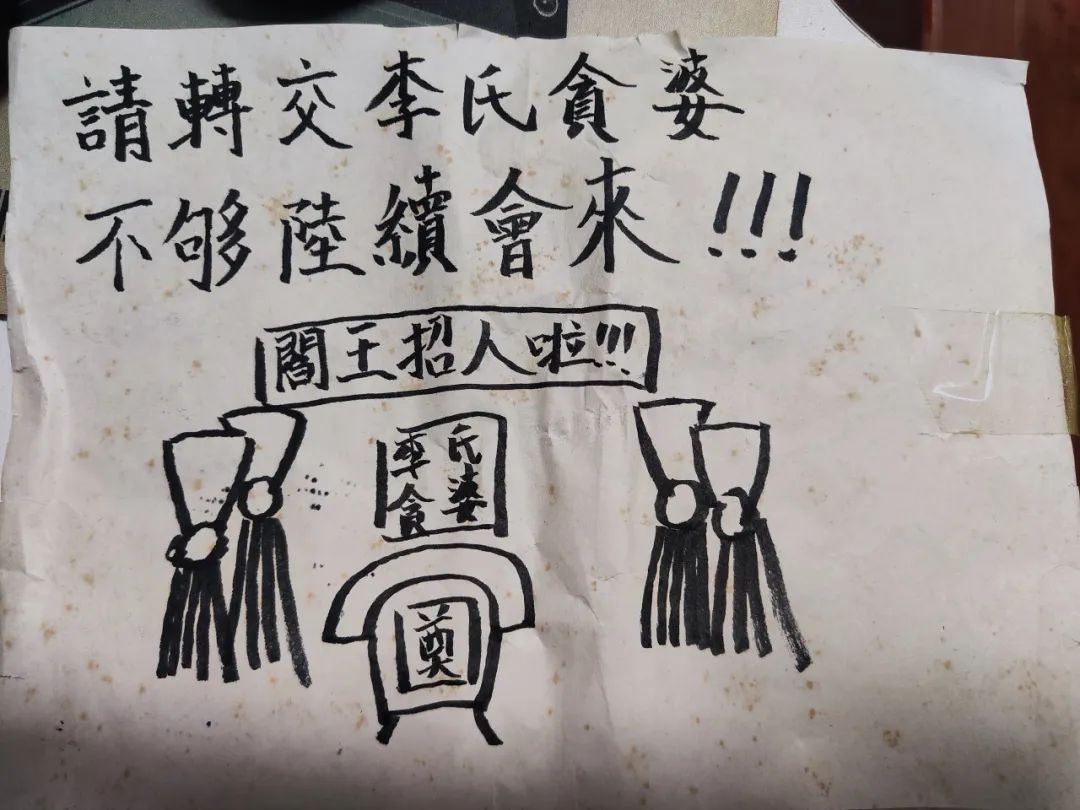 請轉交李氏貪婆
不够陸續會來!!!
閻王招人啦!!!
李氏
貪婆
奠